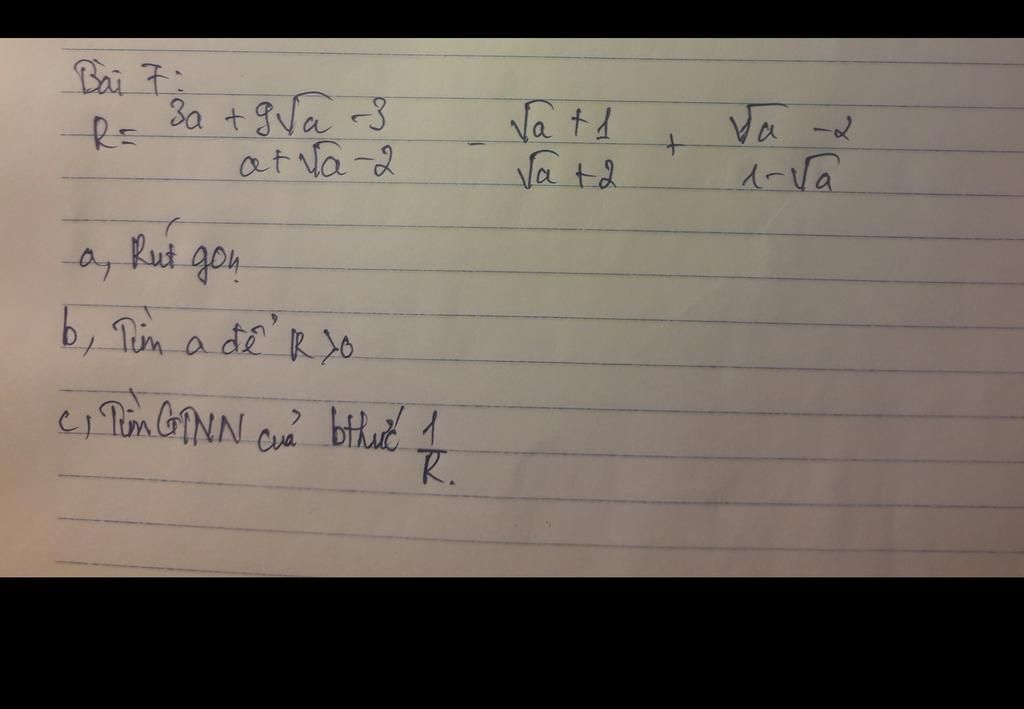 Bài 7:
R = \frac{3a + 9\sqrt{a} - 3}{a + \sqrt{a} - 2} - \frac{\sqrt{a} + 1}{\sqrt{a} + 2} + \frac{\sqrt{a} - 2}{1 - \sqrt{a}}
a, Rút gọn
b, Tìm a để R > 0
c, Tìm GTNN của bthức \frac{1}{R}.